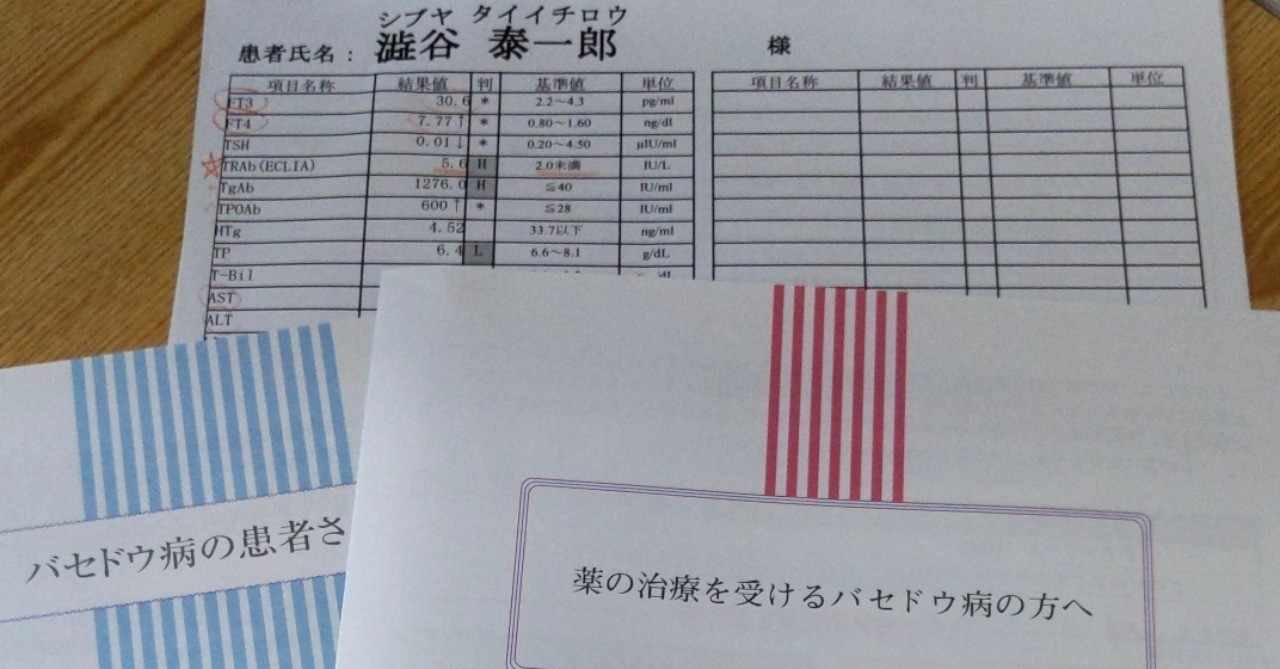 シブヤ タイイチロウ
患者氏名： 澁谷 泰一郎 様
項目名称 結果値 判 基準値 単位 項目名称 結果値 判 基準値 単位
FT3 30.6 * 2.2～4.3 pg/ml
FT4 7.77↑ * 0.80～1.60 ng/dl
TSH 0.01↓ * 0.20～4.50 μIU/ml
TRAb(ECLIA) 5.6 H 2.0未満 IU/L
TgAb 1276.0 H ≦40 IU/ml
TPOAb 600↑ * ≦28 IU/ml
HTg 4.52 33.7以下 ng/ml
TP 6.4 L 6.6～8.1 g/dL
T-Bil
AST
ALT
バセドウ病の患者さ
薬の治療を受けるバセドウ病の方へ